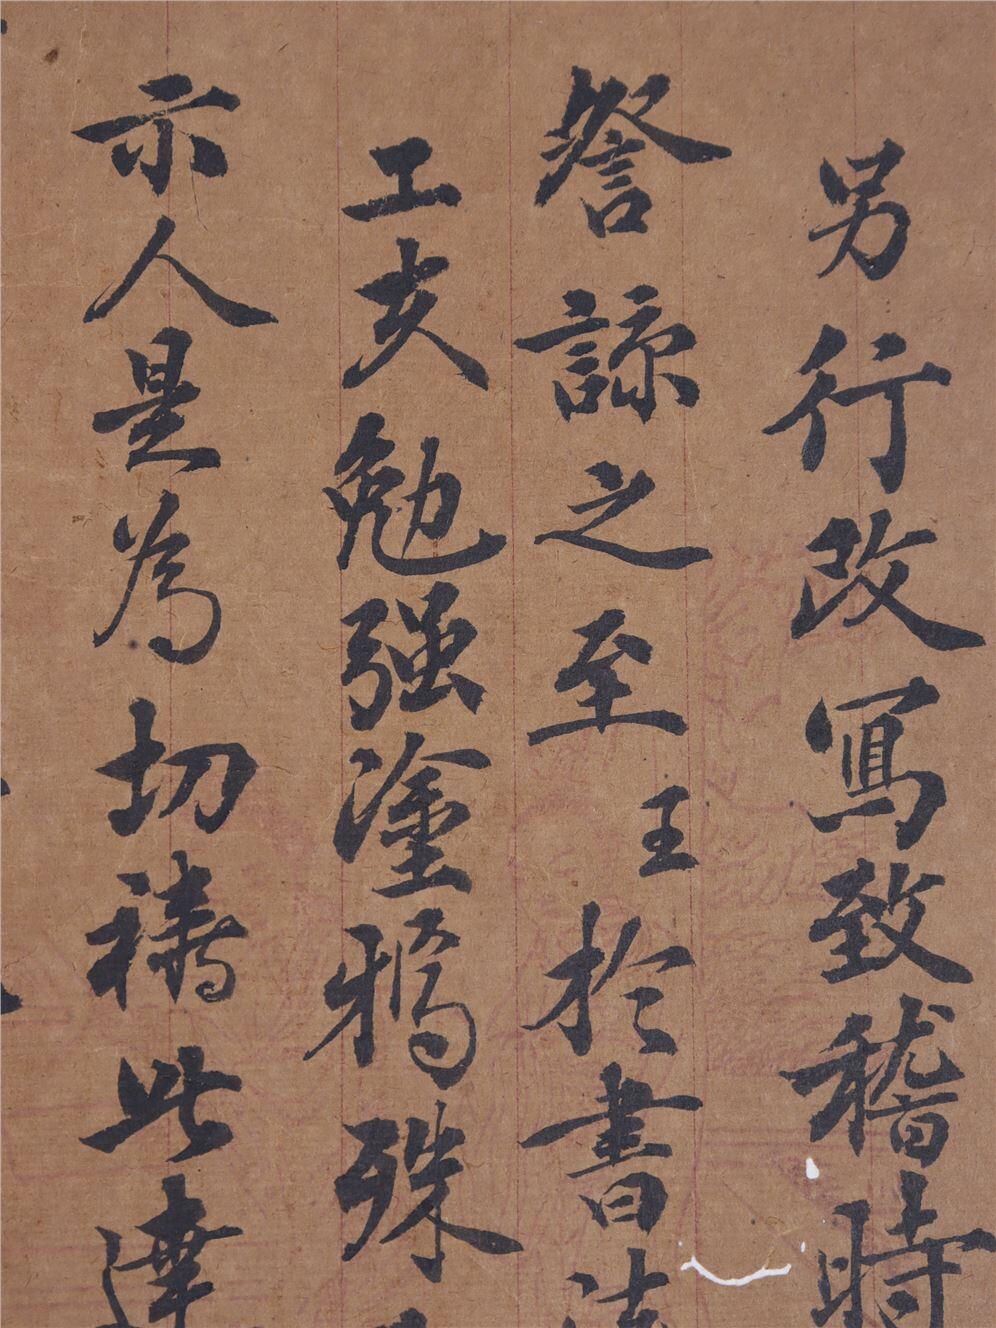 另行改寫致稽時
詧諒之至王於書法
工夫勉强塗鴉殊
示人是為切禱此達